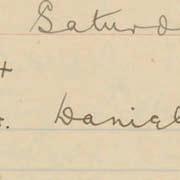 Saturd
+
. Daniel